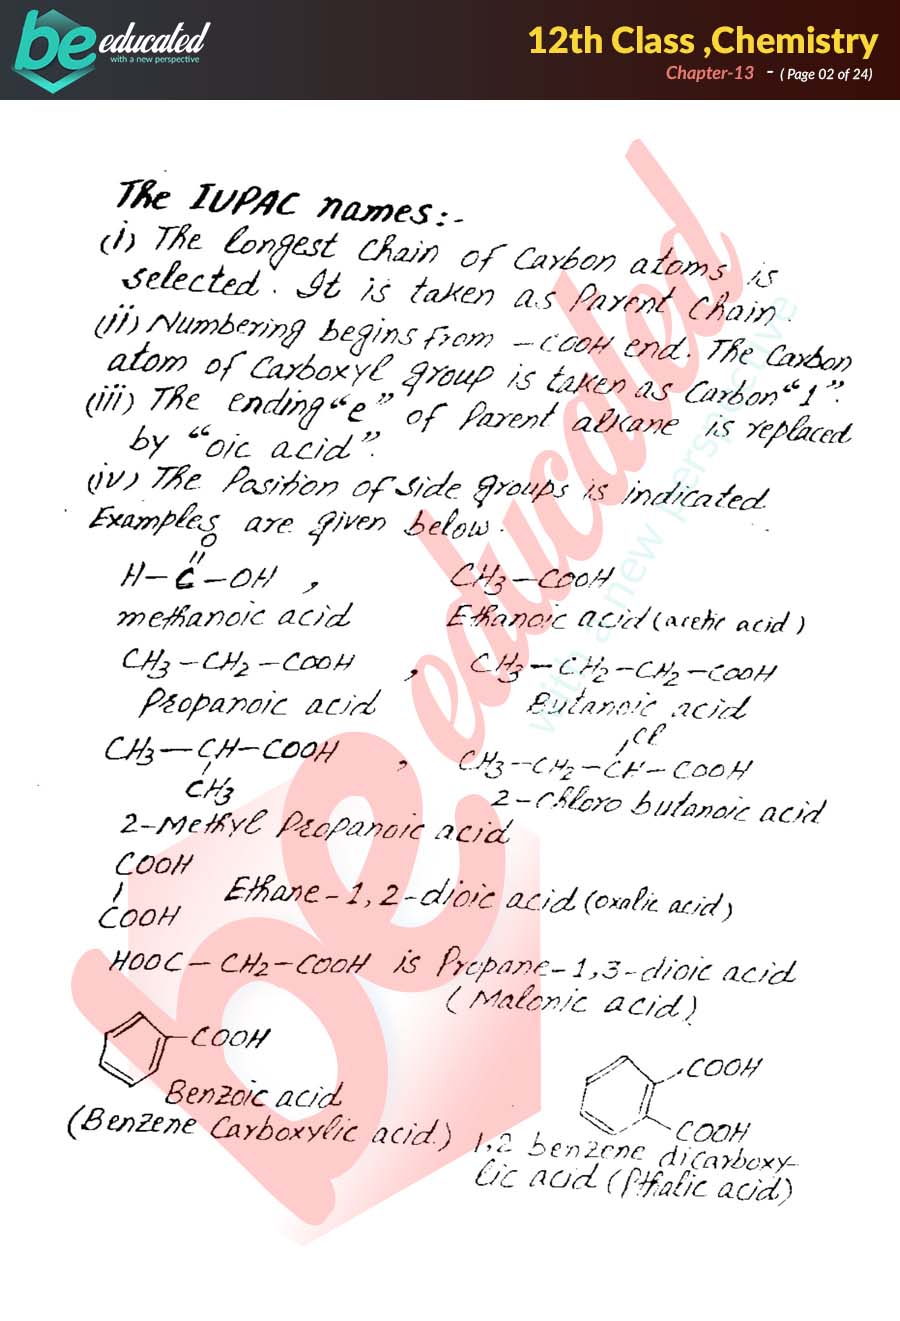 be educated
with a new perspective
12th Class ,Chemistry
Chapter-13 - ( Page 02 of 24)
The IUPAC names:-
(i) The longest chain of carbon atoms is
selected. It is taken as Parent chain.
(ii) Numbering begins from -COOH end. The Carbon
atom of Carboxyl group is taken as Carbon "1".
(iii) The ending "e" of Parent alkane is replaced
by "oic acid".
(iv) The Position of side groups is indicated
Examples are given below.
O
H-C-OH , CH3-COOH
methanoic acid Ethanoic acid (acetic acid)
CH3-CH2-COOH , CH3-CH2-CH2-COOH
Propanoic acid Butanoic acid
Cl
CH3-CH-COOH , CH3-CH2-CH-COOH
CH3 2-Chloro butanoic acid
2-Methyl Propanoic acid
COOH
Ethane-1,2-dioic acid (oxalic acid)
COOH
HOOC-CH2-COOH is Propane-1,3-dioic acid
(Malonic acid).
COOH
COOH
Benzoic acid
(Benzene Carboxylic acid.)
COOH
1,2 benzene dicarboxy-
lic acid (Pthalic acid)
be educated
with a new perspective